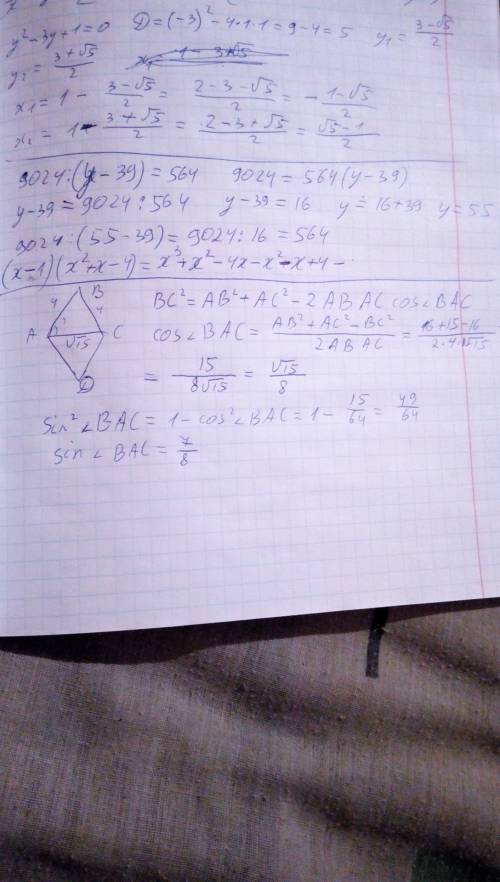 y²-3y+1=0 D=(-3)²-4·1·1=9-4=5 y₁=(3-√5)/2
y₂=(3+√5)/2
x₁=1-(3-√5)/2=(2-3-√5)/2=-(1-√5)/2
x₂=1-(3+√5)/2=(2-3+√5)/2=(√5-1)/2
9024:(y-39)=564 9024=564(y-39)
y-39=9024:564 y-39=16 y=16+39 y=55
9024:(55-39)=9024:16=564
(x-1)(x²+x-4)=x³+x²-4x-x²-x+4-
B
4 4
A C
√15
D
BC²=AB²+AC²-2AB AC cos∠BAC
cos∠BAC=(AB²+AC²-BC²)/(2AB AC)=(16+15-16)/(2·4·√15)
=15/(8√15)=√15/8
sin²∠BAC=1-cos²∠BAC=1-15/64=49/64
sin∠BAC=7/8